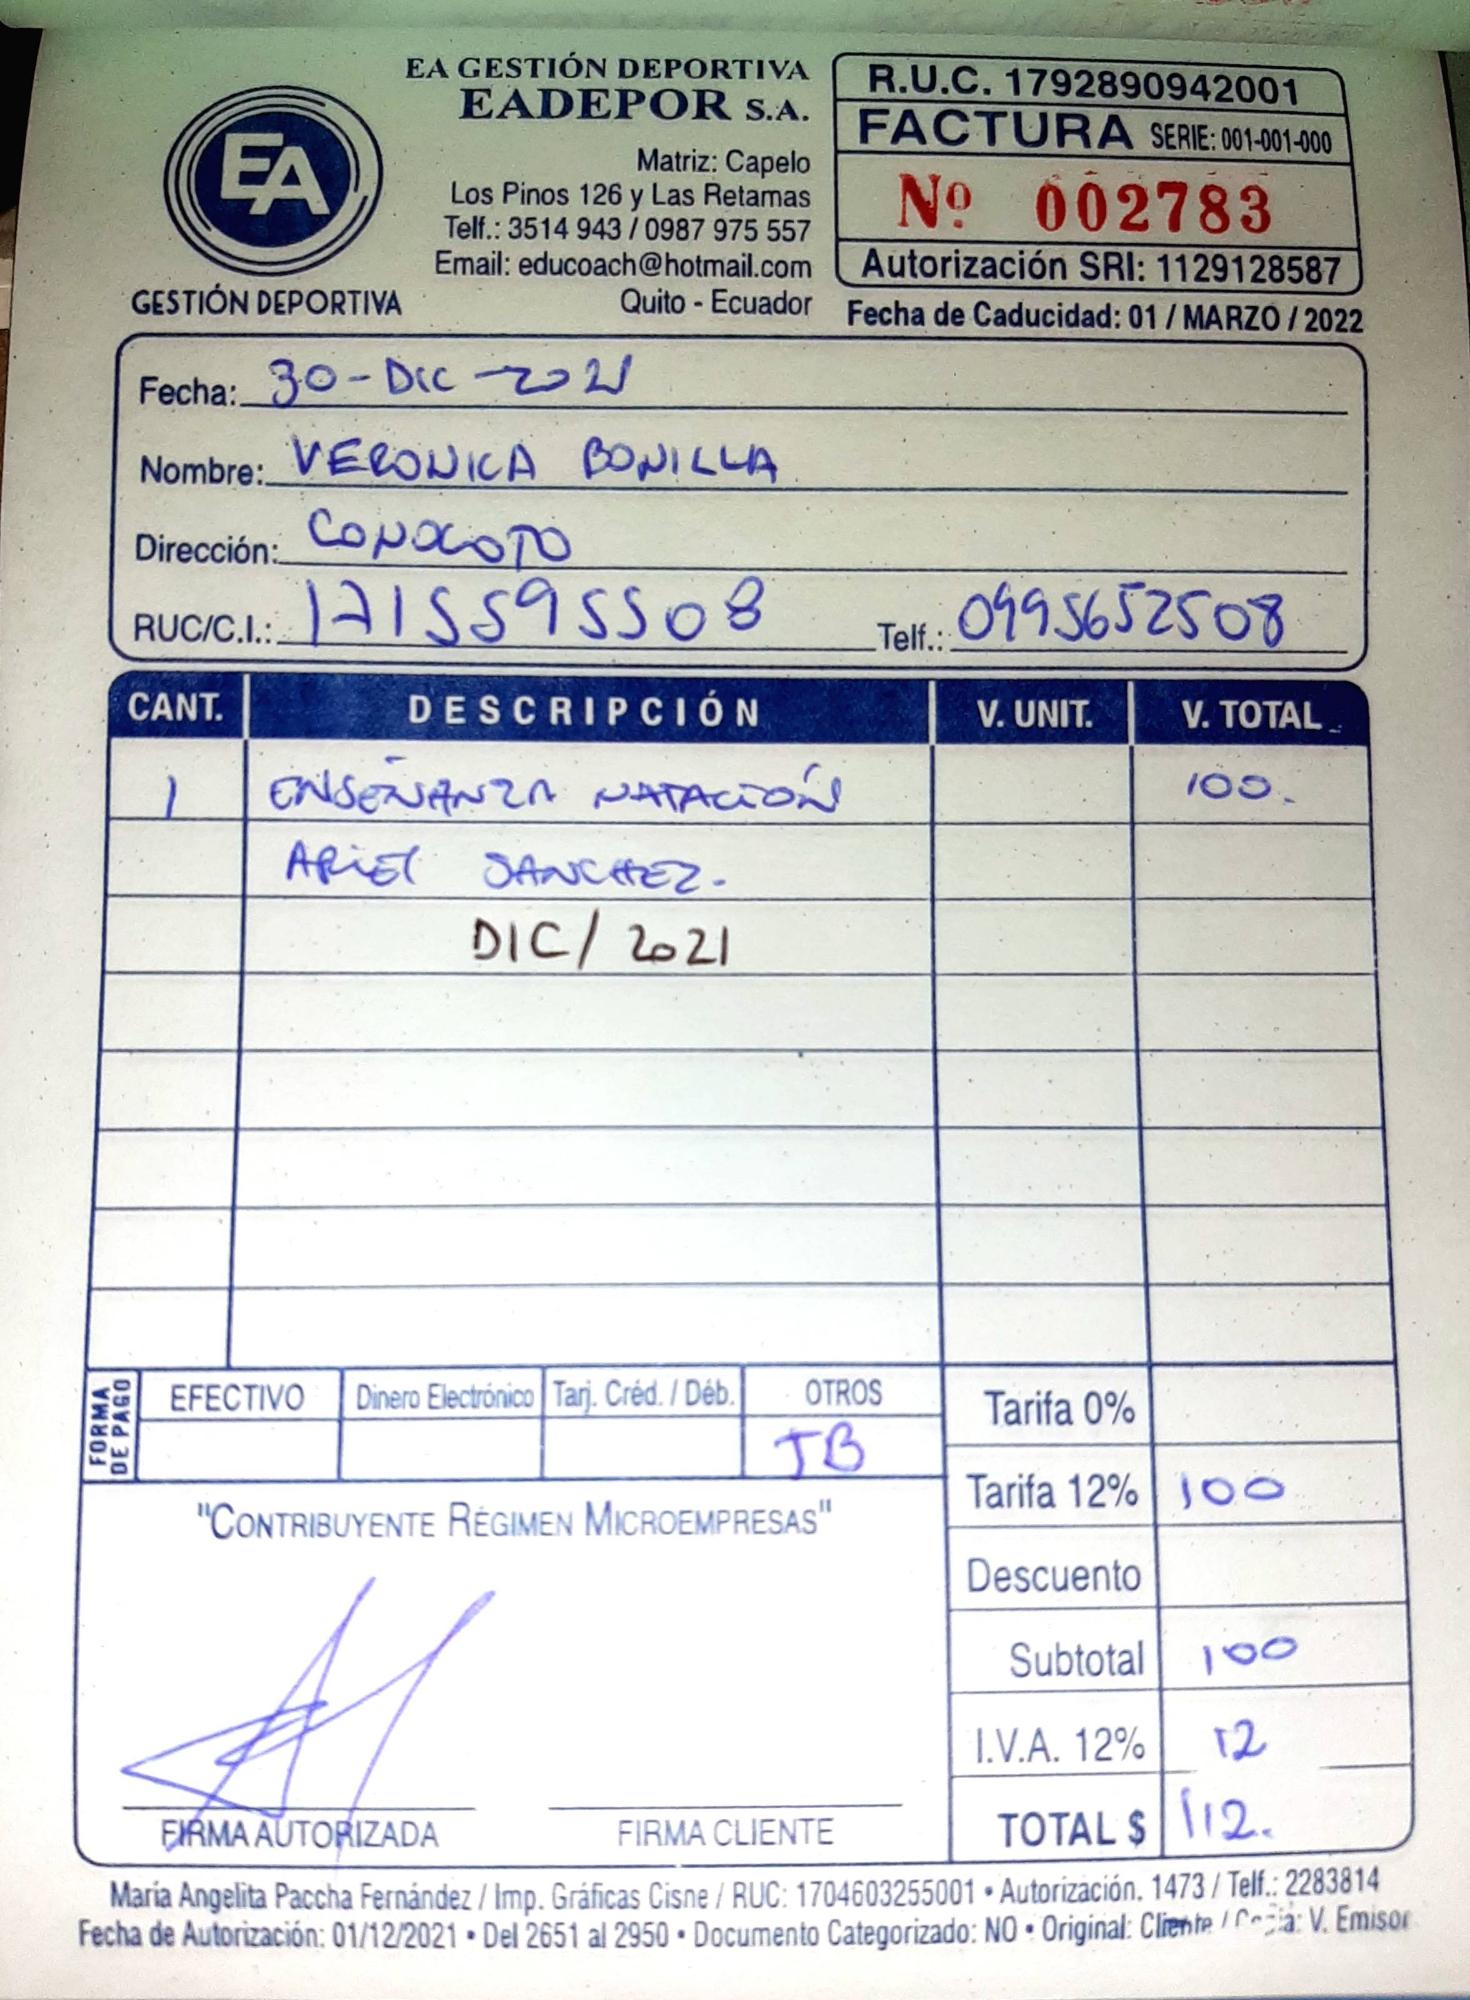 EA GESTIÓN DEPORTIVA
EADEPOR S.A.
EA
GESTIÓN DEPORTIVA
Matriz: Capelo
Los Pinos 126 y Las Retamas
Telf.: 3514 943 / 0987 975 557
Email: educoach@hotmail.com
Quito - Ecuador
R.U.C. 1792890942001
FACTURA SERIE: 001-001-000
Nº 002783
Autorización SRI: 1129128587
Fecha de Caducidad: 01 / MARZO / 2022
Fecha: 30-DIC-2021
Nombre: VERONICA BONILLA
Dirección: CONOCOTO
RUC/C.I.: 1715595508 Telf.: 0995652508
CANT. DESCRIPCIÓN V. UNIT. V. TOTAL
1 ENSEÑANZA NATACIÓN 100.
ARIEL SANCHEZ.
DIC/2021
FORMA DE PAGO
EFECTIVO Dinero Electrónico Tarj. Créd. / Déb. OTROS
TB
Tarifa 0%
Tarifa 12% 100
Descuento
Subtotal 100
I.V.A. 12% 12
TOTAL $ 112.
"CONTRIBUYENTE RÉGIMEN MICROEMPRESAS"
FIRMA AUTORIZADA FIRMA CLIENTE
María Angelita Paccha Fernández / Imp. Gráficas Cisne / RUC: 1704603255001 • Autorización. 1473 / Telf.: 2283814
Fecha de Autorización: 01/12/2021 • Del 2651 al 2950 • Documento Categorizado: NO • Original: Cliente / Copia: V. Emisor